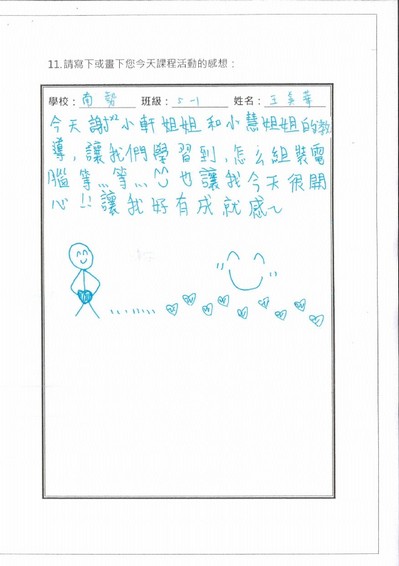 11.請寫下或畫下您今天課程活動的感想：
學校：南勢 班級：5-1 姓名：王
今天謝謝小軒姐姐和小慧姐姐的教
導，讓我們學習到，怎么組裝電
腦等...等...也讓我今天很開
心!!讓我好有成就感~